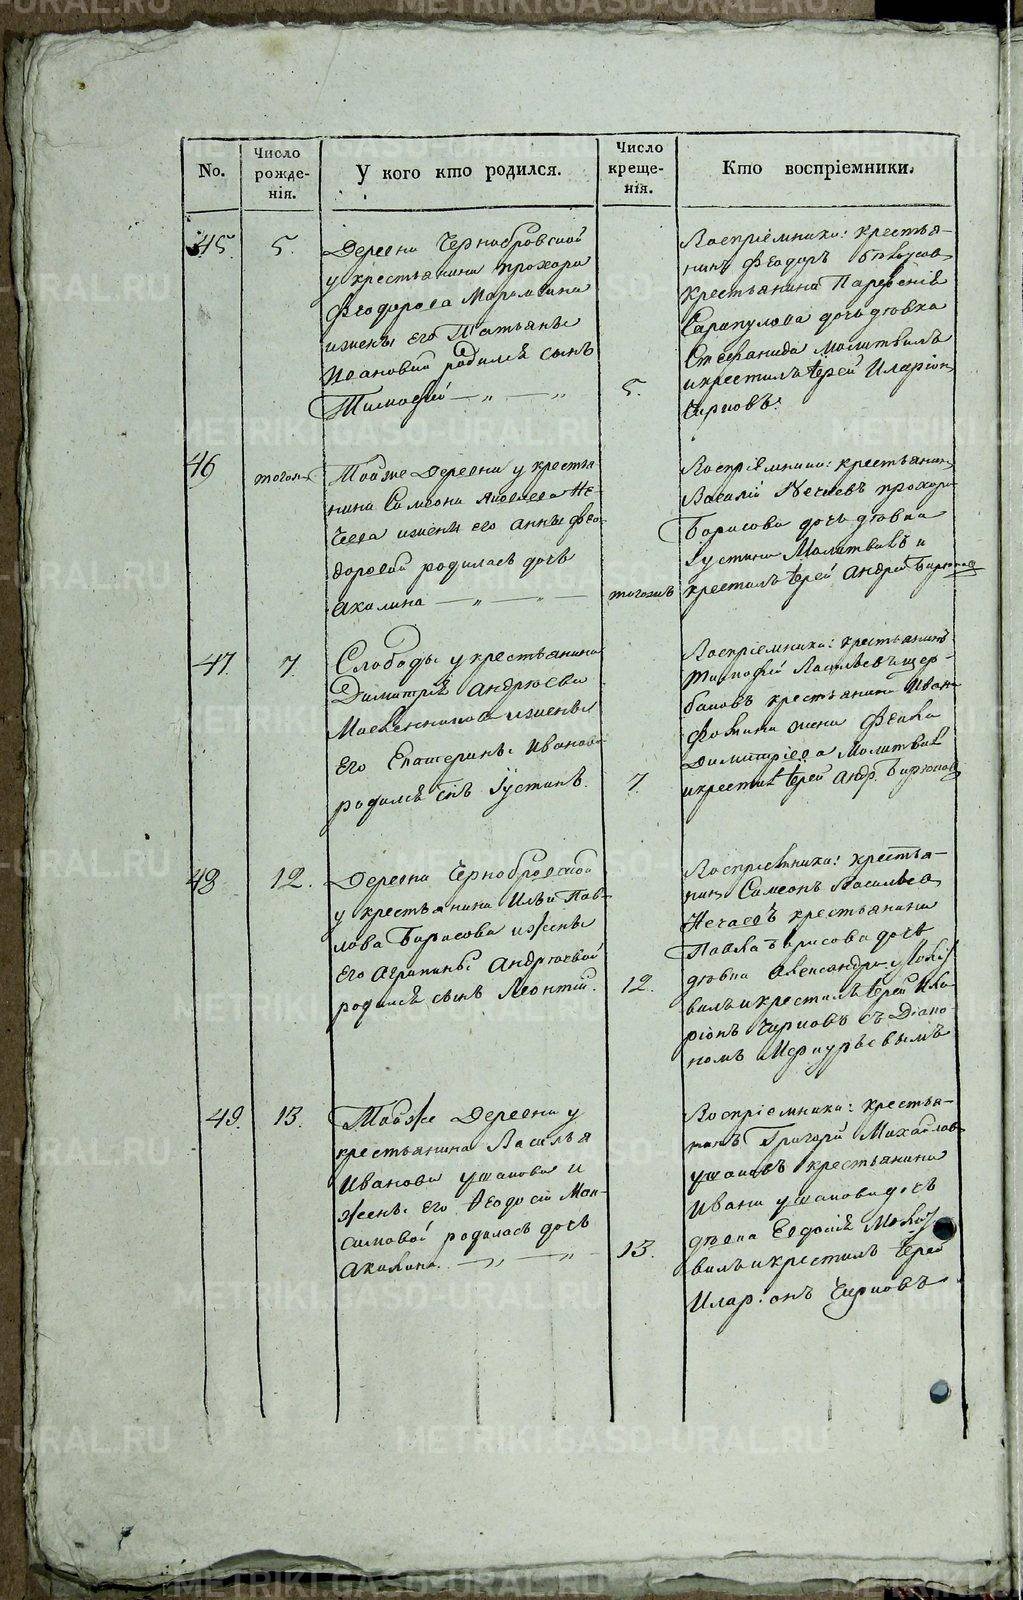 No.
Число рожде-
нія.
У кого кто родился.
Число креще-
нія.
Кто воспріемники.
45.
5.
Деревни Чернобровской
у крестьянина Прохора
Феодорова
и жены его Татьяны
Ивановой родился сынъ
Тимофей — „ — „
5.
Воспріемники: крестья-
нинъ Феодоръ
крестьянина Парфенія
Сарапулова дочь девка
Стефанида молитвилъ
и крестилъ Іерей Иларіон
Чирковъ.
46
тогожъ
Тойже Деревни у крестья
нина Симеона Яковлева Не-
чеева и жены его Анны Фео-
доровой родилась дочь
Акилина — „ — „ —
тогожъ
Воспріемники: крестьянин
Василій Нечеевъ Прохора
Борисова дочь девка
Іустина Молитвилъ и
крестилъ Іерей Андрей Бирюков
47.
7
Слободы у крестьянина
Димитрія Андреева
и жены
его Екатерины Иванов
родился снъ Іустинъ.
7.
Воспріемники: крестьянинъ
Тимофей Васильевъ Щер-
баковъ крестьянина Ивана
Фокина жена Фекла
Димитріева Молитвил
и крестил Іерей Андр. Бирюков
48
12.
Деревни Чернобровской
у крестьянина Ильи Пав-
лова Борисова и жены
его Агрипины Андреевой
родился сынъ Леонтій.
12.
Воспріемники: крестья-
нин Симеонъ Васильев
Нечаевъ крестьянина
Павла Борисова дочь
девка Александра Молит
вилъ и крестилъ Іерей Ила-
ріонъ Чирковъ съ Діако-
номъ Меркурьевымъ
49.
13.
Тойже Деревни у
крестьянина Василья
Иванова Ушакова и
жены его Феодосіи Мак-
симовой родилась дочь
Акилина. — „ — „ —
13.
Воспріемники: крестья-
нинъ Григорій Михайлов
Ушаковъ крестьянина
Ивана Ушакова дочь
девка Евдокія Молит
вилъ и крестилъ Іерей
Иларіонъ Чирковъ.
METRIKI.GASO-URAL.RU